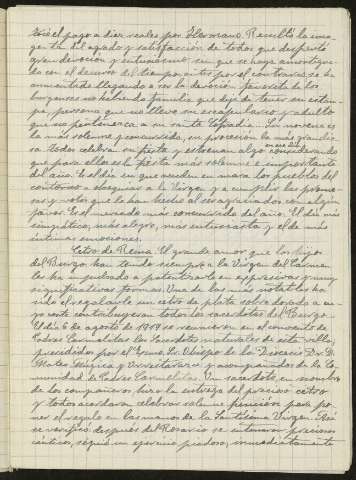 tió el pago a diez reales por Hermano. Resultó la ima-
gen tal agrado y satisfacción de todos que despertó
gran devoción y entusiasmo sin que se haya amortigua-
do con el decurso del tiempo antes por el contrario se ha
aumentado llegando a ser la devoción favorita de los
burgenses no habiendo familia que deje de tener su estam-
pa, persona que no lleve su escapulario y adulto
que no pertenezca a su santa Cofradía. Su novena es
la más solemne y concurrida, su procesión la más grandio-
sa todos celebran su fiesta y es tiene algo
que para ellos es la fiesta más solemne e importante
del año. Es el día en que acuden en masa los pueblos del
contorno a obsequiar a la Virgen y a cumplir las prome-
sas y votos que le han hecho al ser agraciados con algún
favor. Es el mercado más concurrido del año. El día más
simpático, más alegre, más entusiasta y el de más
íntimas emociones.
Cetro de Reina. El grande amor que los hijos
del Burgo han tenido siempre a la Virgen del Carmen
les ha impulsado a patentizarlo en expresivas y muy
significativas formas. Una de las más notables ha
sido el regalarle un cetro de plata sobre dorado a cu-
yo coste contribuyeron todos los sacerdotes del Burgo.
El día 6 de agosto de 1919 se reunieron en el convento de
Padres Carmelitas los Sacerdotes naturales de esta villa,
presididos por el Excmo. Sr. Obispo de la Diócesis Dr. D.
Mateo Múgica y Urrestarazu y acompañados de la Co-
munidad de Padres Carmelitas. Un sacerdote, en nombre
de los compañeros, hizo la entrega del precioso cetro
y todos acordaron celebrar solemne función para po-
ner el regalo en las manos de la Santísima Virgen. Así
se verificó después del Rosario se entonaron preciosos
cánticos, siguió un ejercicio piadoso, inmediatamente